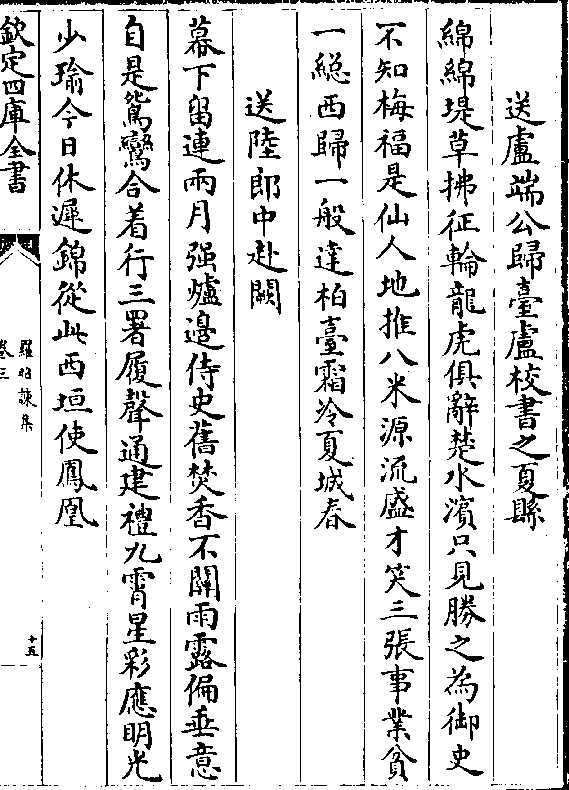 送盧端公歸臺盧校書之夏縣
綿綿堤草拂征輪龍虎俱辭楚水濱只見勝之為御史
不知梅福是仙人地推八米源流盛才笑三張事業貧
一緫西歸一般達柏臺霜冷夏城春
送陸郎中赴闕
幕下留連兩月强爐邉侍史舊焚香不關雨露偏垂意
自是鴛鸞合着行三署履聲通建禮九霄星彩應明光
少瑜今日休遲錦從此西垣使鳳凰
欽定四庫全書
羅昭諫集
卷三
十五